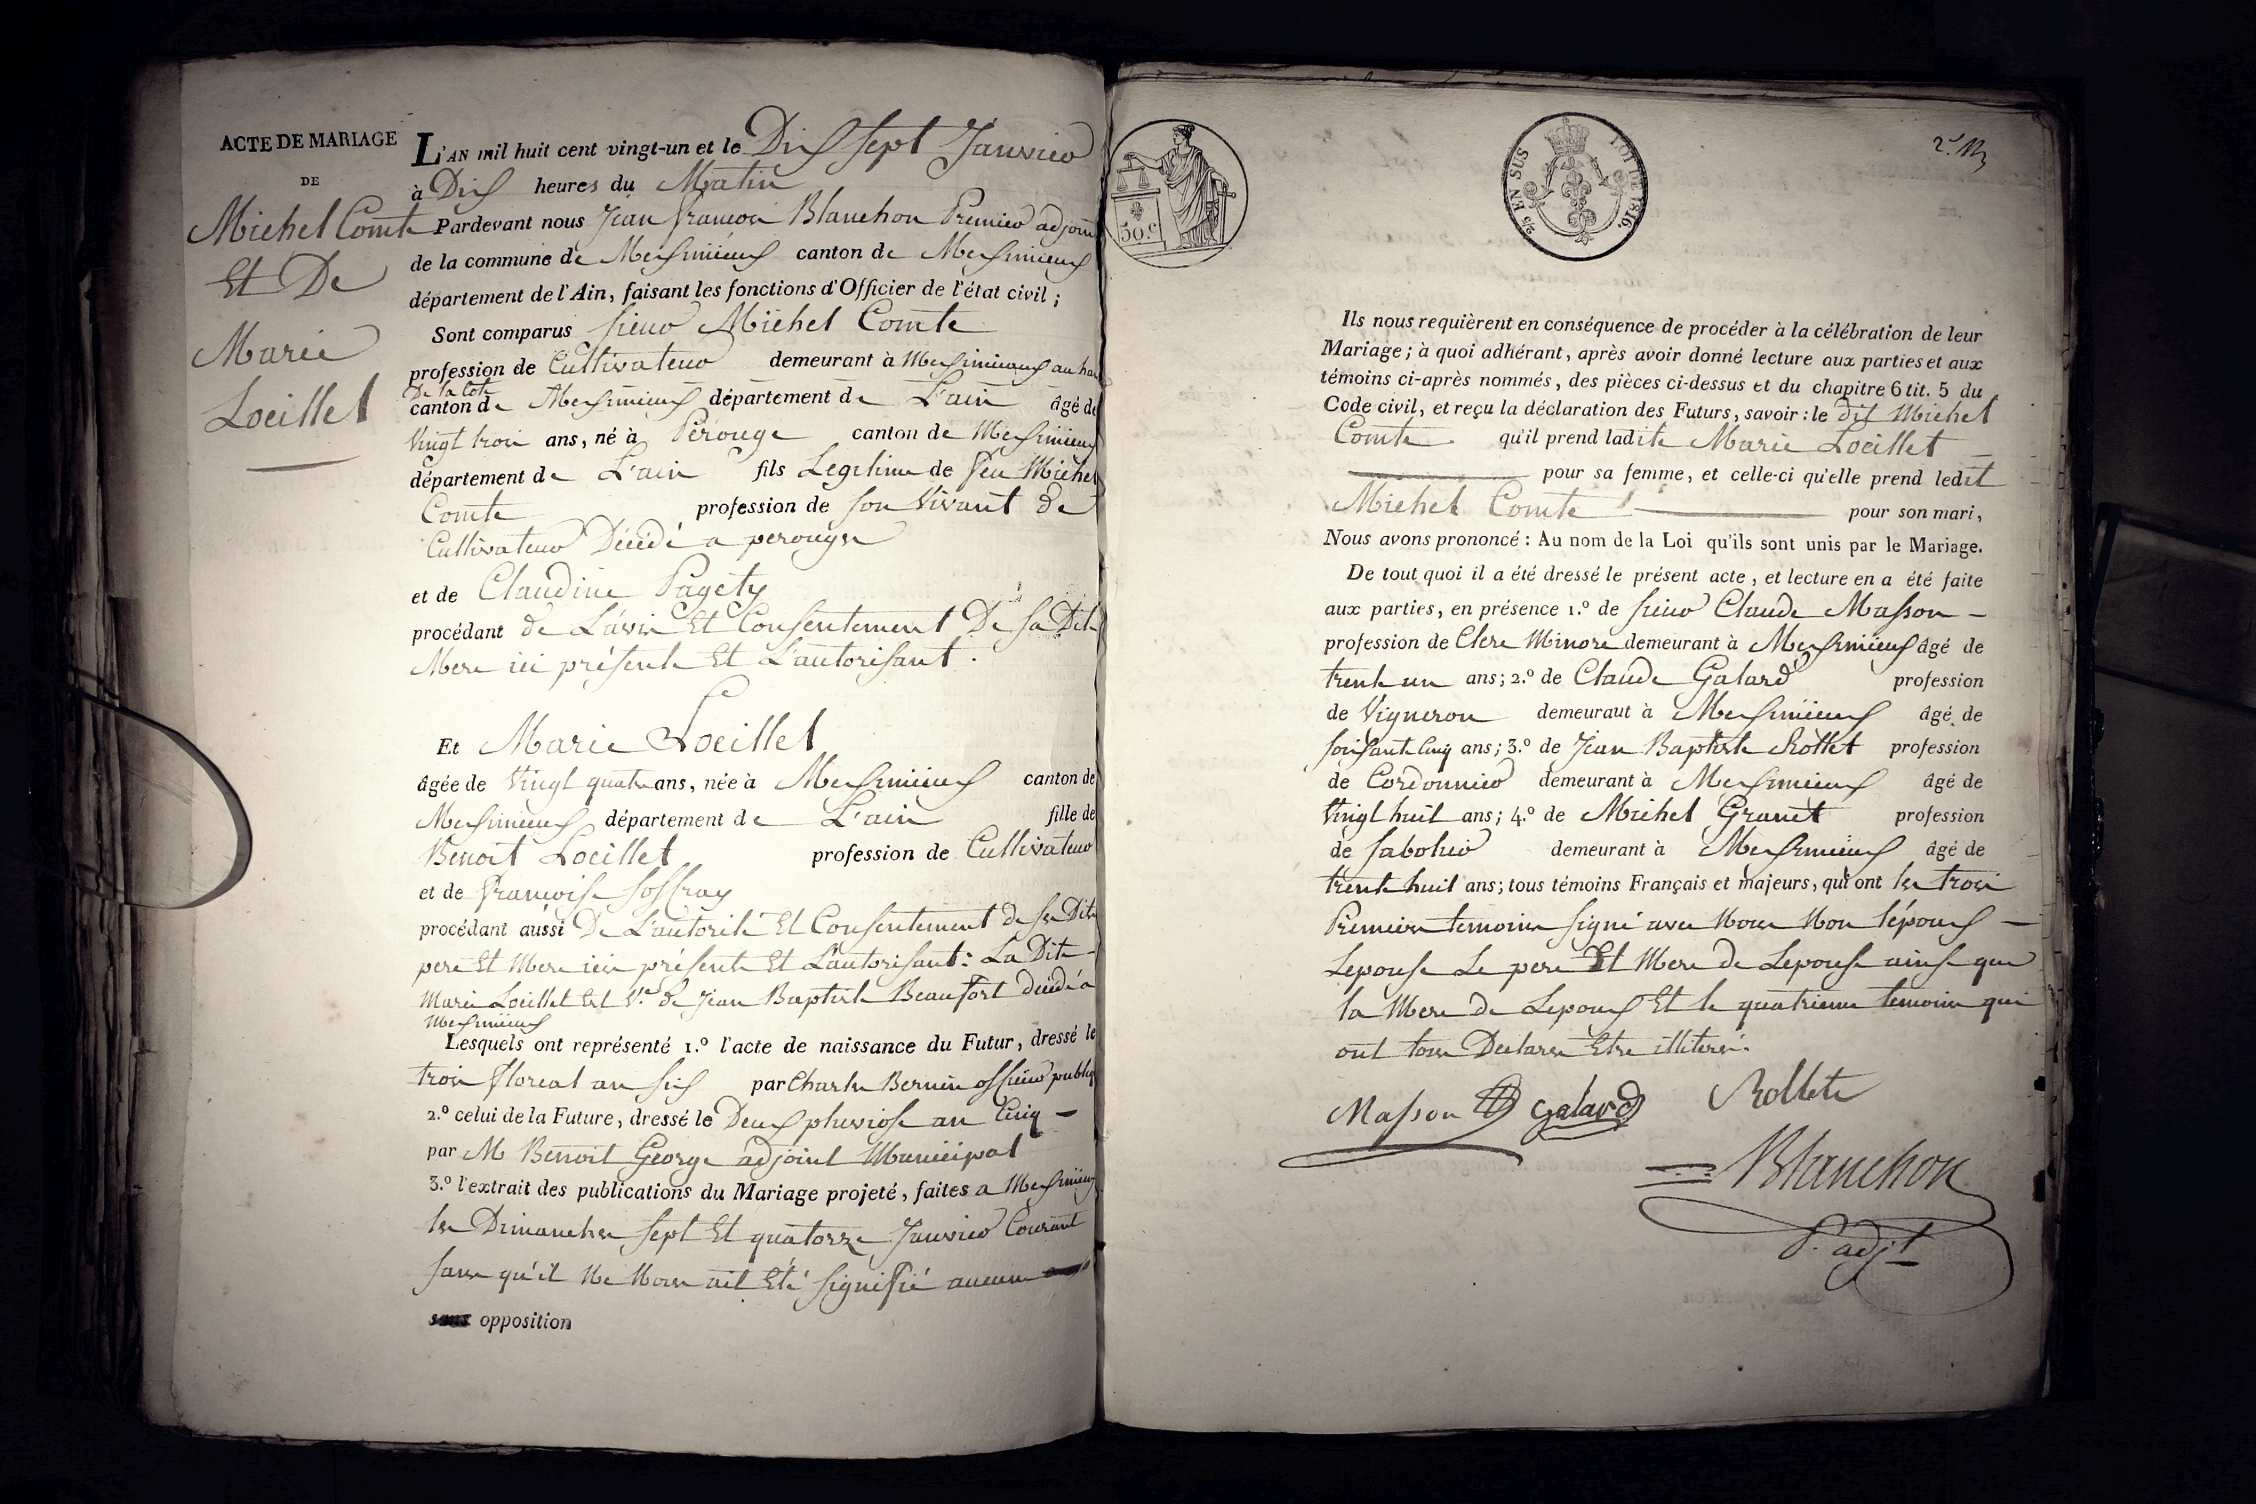 ACTE DE MARIAGE
DE
Michel Comte
Et De
Marie
Loeillet
L'AN mil huit cent vingt-un et le Dix sept Janvier
à Dix heures du Matin
Pardevant nous Jean françois Blanchon Premier adjoint
de la commune de Meximieux canton de Meximieux
département de l'Ain, faisant les fonctions d'Officier de l'état civil ;
Sont comparus sieur Michel Comte
profession de Cultivateur demeurant à Meximieux au ham
De la Cote
canton de Meximieux département de L'ain âgé de
Vingt trois ans, né à Pérouge canton de Meximieux
département de L'ain fils Legitime de feu Michel
Comte profession de son Vivant de
Cultivateur Décédé a perouges
et de Claudine Pagety
procédant de L'avis Et Consentement De sa Dite
Mere ici présente Et L'autorisant.
Et Marie Loeillet
âgée de Vingt quatre ans, née à Meximieux canton de
Meximieux département de L'ain fille de
Benoit Loeillet profession de Cultivateur
et de françoise Joffray
procédant aussi De L'autorité Et Consentement de ses Dits
pere Et Mere ici présents Et L'autorisant : La Dite
Marie Loeillet Est Ve. de Jean Baptiste Beaufort décédé a
Meximieux
Lesquels ont représenté 1.º l'acte de naissance du Futur, dressé le
trois floreal an six par Charles Bernin officier public
2.º celui de la Future, dressé le Deux pluviose an Cinq -
par M Benoit George adjoint Municipal
3.º l'extrait des publications du Mariage projeté, faites a Meximieux
les Dimanches sept Et quatorze Janvier Courant
sans qu'il Ne Nous ait Eté signifié aucune
sans opposition
50.c
25 EN SUS
LOI DE 1816.
Ils nous requièrent en conséquence de procéder à la célébration de leur
Mariage ; à quoi adhérant, après avoir donné lecture aux parties et aux
témoins ci-après nommés, des pièces ci-dessus et du chapitre 6 tit. 5 du
Code civil, et reçu la déclaration des Futurs, savoir : le dit Michel
Comte qu'il prend ladite Marie Loeillet
pour sa femme, et celle-ci qu'elle prend ledit
Michel Comte pour son mari,
Nous avons prononcé : Au nom de la Loi qu'ils sont unis par le Mariage.
De tout quoi il a été dressé le présent acte, et lecture en a été faite
aux parties, en présence 1.º de sieur Claude Masson -
profession de Clerc Minore demeurant à Meximieux âgé de
trente un ans ; 2.º de Claude Galard profession
de Vigneron demeuraut à Meximieux âgé de
soixante Cinq ans ; 3.º de Jean Baptiste Rollet profession
de Cordonnier demeurant à Meximieux âgé de
Vingt huit ans ; 4.º de Michel Granet profession
de sabotier demeurant à Meximieux âgé de
trente huit ans ; tous témoins Français et majeurs, qui ont les trois
Premiers temoins signé avec Nous Non l'époux -
Lepouse Le pere Et Mere de Lepouse ainse que
la Mere de Lepoux Et le quatrieme temoins qui
ont tous Declarer Etre illiterés.
Masson Galard Rollet
Blanchon
P. adjt